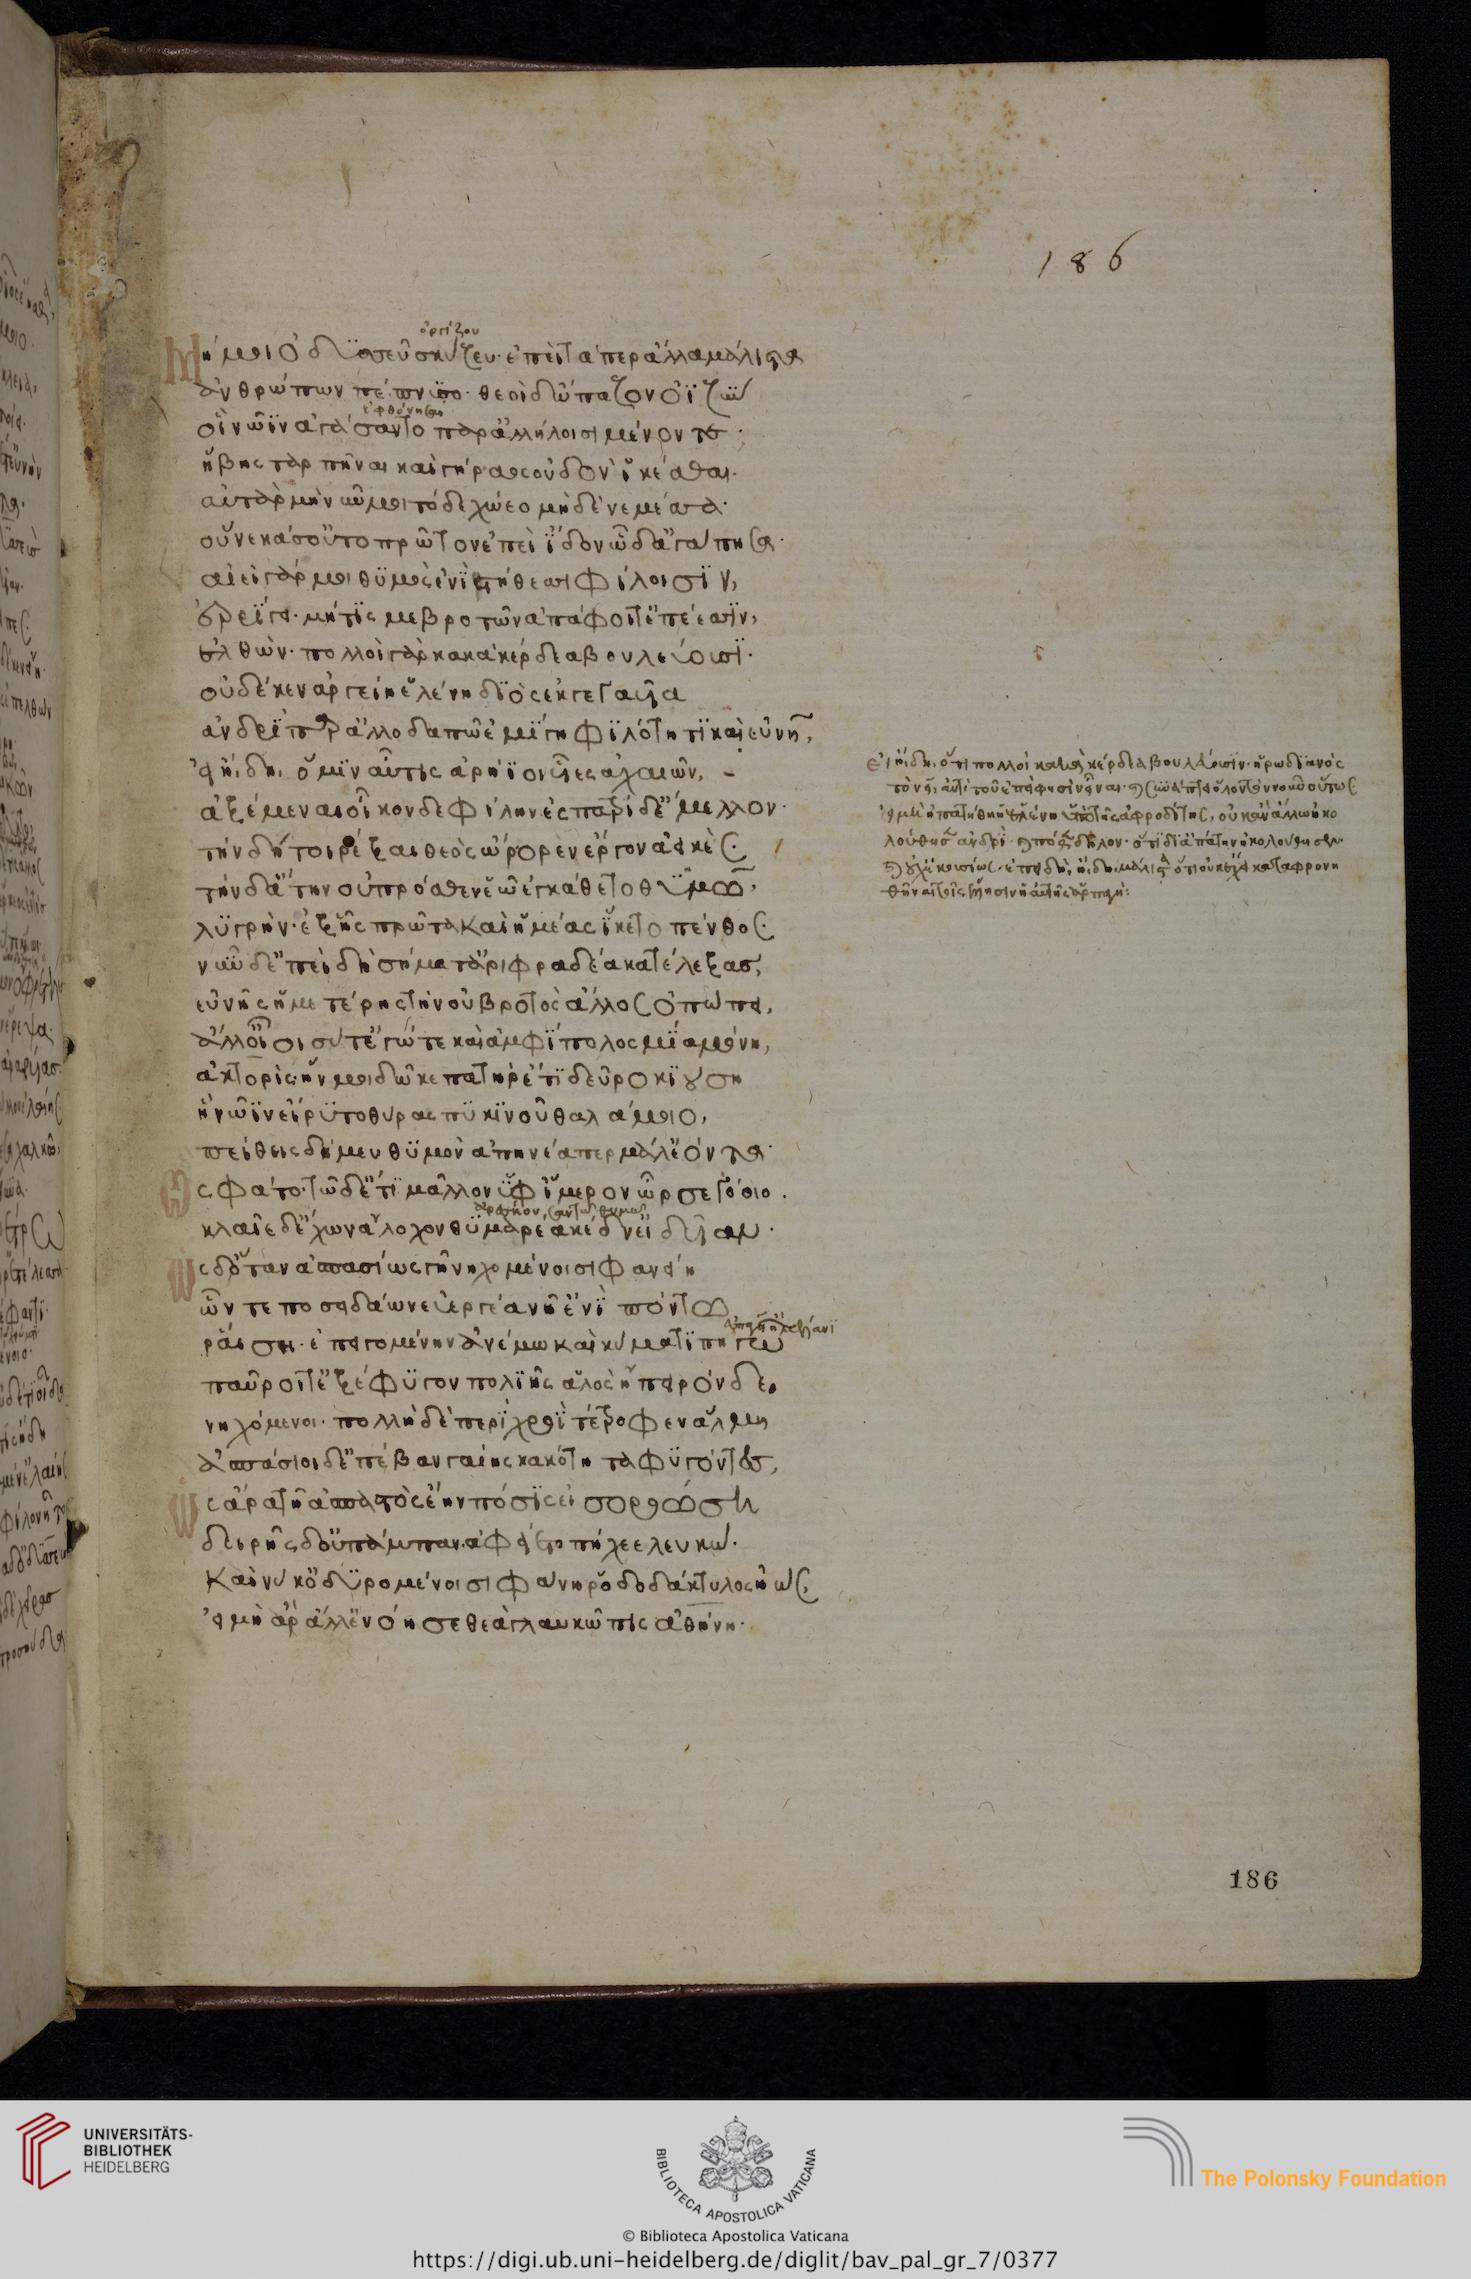 186
ὀργίζου
Μή μοι ὀδυσεῦ σκύζευ· ἐπεὶ τά περ ἄλλα μάλιστα
ἀνθρώπων πέπνυσο· θεοὶ δ' ὤπαζον ὀϊζύν
ἐφθόνησαν
οἳ νῶϊν ἀγάσαντο παρ' ἀλλήλοισι μένοντε·
ἥβης ταρπῆναι καὶ γήραος οὐδὸν ἱκέσθαι·
αὐτὰρ μὴ νῦν μοι τόδε χώεο μηδὲ νεμέσσα·
οὕνεκά σ' οὐ τὸ πρῶτον ἐπεὶ ἴδον ὧδ' ἀγάπησα·
αἰεὶ γάρ μοι θϋμὸς ἐνὶ στήθεσσι φίλοισϊν,
ἐρρίγει· μή τίς με βροτῶν ἀπάφοιτ' ἐπέεσσϊν,
ἐλθών· πολλοὶ γὰρ κακὰ κέρδεα βουλεύουσϊ·
οὐδέ κεν ἀργείη ἑλένη δϊὸς ἐκγεγαυῖα
ἀνδρὶ παρ' ἀλλοδαπῶ ἐμίγη φϊλότητϊ καὶ εὐνῆ,
εἰ ἤδη, ὅ μϊν αὖτις ἀρήϊοι υἷες ἀχαιῶν,
ἀξέμεναι οἶκον δὲ φίλην ἐς πατρίδ' ἔμελλον·
τὴν δ' ἤτοι ῥέξαι θεὸς ὤρορεν ἔργον ἀεικές·
τὴν δ' ἄτην οὐ πρόσθεν ἑῶ ἐγκάθετο θϋμῶ,
λϋγρήν· ἐξ ἧς πρῶτα καὶ ἡμέας ἵκετο πένθος·
νῦν δ' ἐπεὶ δὴ σήματ' ἀριφραδέα κατέλεξας,
εὐνῆς ἡμετέρης τὴν οὐ βροτὸς ἄλλος ὀπώπει,
ἀλλ' οἶοι σύ τ' ἐγώ τε καὶ ἀμφίπολος μία μούνη,
ἀκτορίς· ἥν μοι δῶκε πατὴρ ἔτϊ δεῦρο κϊούση
ἣ νῶϊν εἴρϋτο θύρας πϋκϊνοῦ θαλάμοιο,
πείθεις δή μευ θϋμὸν ἀπηνέα περ μάλ' ἐόντα·
Ὣς φάτο· τῶ δ' ἔτϊ μᾶλλον ὑφ' ἵμερον ὦρσε γόοιο.
κλαῖε δ' ἔχων ἄλοχον θϋμαρέα κέδν' εἰδυῖαν.
Ὡς δ' ὅταν ἀσπασίως γῆ νηχομένοισι φανείη
ὧν τε ποσειδάων εὐεργέα νῆ' ἐνὶ πόντω
ῥαίση· ἐπειγομένην ἀνέμω καὶ κύματϊ πηγῶ
παῦροι τ' ἐξέφϋγον πολϊῆς ἁλὸς ἤπειρόνδε,
νηχόμενοι· πολλὴ δὲ περὶ χροῒ τέτροφεν ἅλμη
ἀσπάσιοι δ' ἐπέβαν γαίης κακότητα φϋγόντες,
Ὣς ἄρα τῆ ἀσπαστὸς ἔην πόσϊς εἰσορωόση
δειρῆς δ' οὔπω πάμπαν ἀφίετο πήχεε λευκώ·
Καί νύ κ' ὀδυρομένοισι φάνη ῥοδοδάκτυλος ἠώς,
εἰ μὴ ἄρ' ἄλλ' ἐνόησε θεὰ γλαυκῶπις ἀθήνη·
Εἰ ἤδη, ὅτι πολλοὶ κακὰ κέρδεα βουλεύουσϊν· ἡρωδϊανὸς
τὸν εἰ, ἀντὶ τοῦ ἐπεί φησὶν εἶναι· οὕτως
εἰ μὴ ἠπατήθη ἡ ἑλένη ὑπὸ τῆς ἀφροδίτης, οὐκ ἂν ἄλλω ἠκο
λούθησεν ἀνδρὶ· δῆλον· ὅτϊ δϊ' ἀπάτην ἠκολούθησεν·
ἑκουσίως· ἐπεὶ δὴ, ἤδη, μάλιστα ὅτι οὐκ εἶχε καταφρονη
θῆναι τοῖς ἕλλησιν ἡ αὐτῆς ἁρπαγή:
186
UNIVERSITÄTS-
BIBLIOTHEK
HEIDELBERG
BIBLIOTECA APOSTOLICA VATICANA
© Biblioteca Apostolica Vaticana
The Polonsky Foundation
https://digi.ub.uni-heidelberg.de/diglit/bav_pal_gr_7/0377